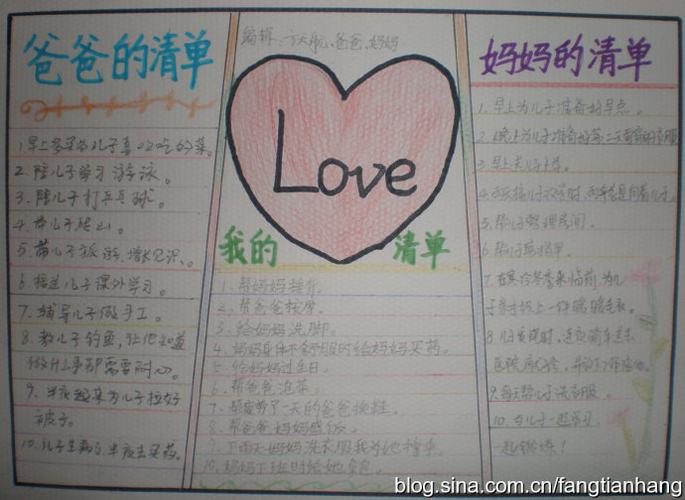 爸爸的清单
1、早上冬菜为儿子喜欢吃的菜。
2、陪儿子学习游泳。
3、陪儿子打乒乓球。
4、带儿子爬山。
5、带儿子旅游,增长见识。
6、接送儿子课外学习。
7、辅导儿子做手工。
8、教儿子钓鱼,让他知道
做什么事都需要耐心。
9、半夜起来为儿子拉好
被子。
10、儿子生病了,半夜去买药。
编辑:方天航、爸爸、妈妈
Love
我的清单
1、帮妈妈捶背。
2、帮爸爸按摩。
3、给妈妈洗脚。
4、妈妈身体不舒服时给妈妈买药。
5、给妈妈过生日
6、帮爸爸泡茶。
7、帮疲劳了一天的爸爸换鞋。
8、帮爸爸妈妈盛饭。
9、下雨天妈妈洗衣服我为她撑伞。
10、妈妈下班时给她拿包。
妈妈的清单
1、早上为儿子准备好早点。
2、晚上为儿子准备好第二天
3、早上送儿子上学。
4、
5、帮儿子整理房间。
6、帮儿子
7、在寒冷冬季来临前,为儿
子亲手织上一件暖暖毛衣。
8、儿子发烧时,连夜
医院
9、每天帮儿子洗衣服。
10、与儿子一起学习,
一起锻炼!
blog.sina.com.cn/fangtianhang